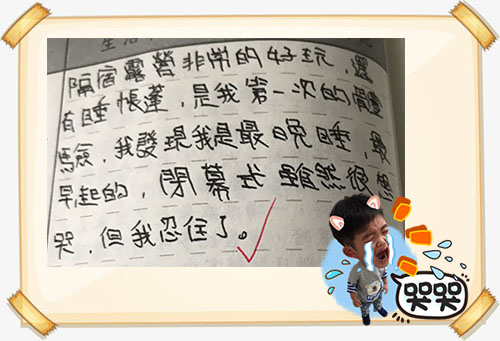 生活
隔宿露營非常的好玩，還
有睡帳蓬，是我第一次的體
驗，我發現我是最晚睡，最
早起的，閉幕式雖然很想
哭，但我忍住了。
哭哭